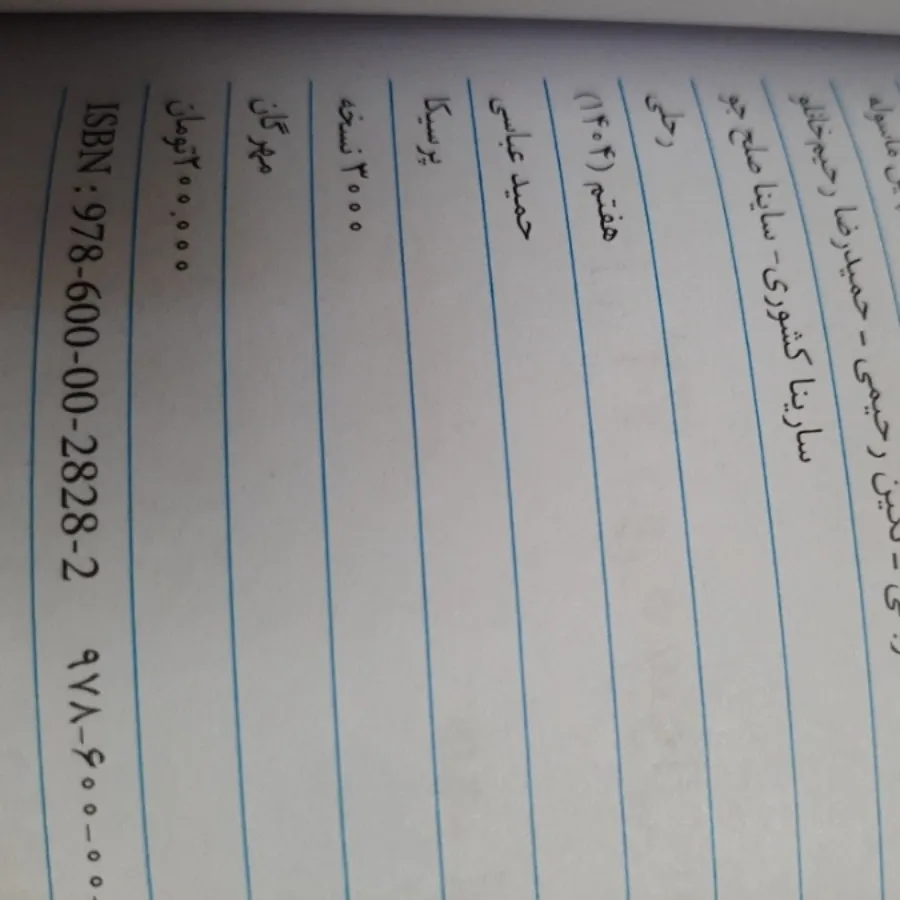 حمیدرضا رحیم‌خانلو
نگین رحیمی -
سارینا کشوری - ساینا صلح جو
رحلی
هفتم (۱۴۰۴)
حمید عباسی
پرسیکا
۳۰۰۰ نسخه
مهرگان
۲۰۰,۰۰۰ تومان
ISBN : 978-600-00-2828-2 ۹۷۸-۶۰۰-۰۰-